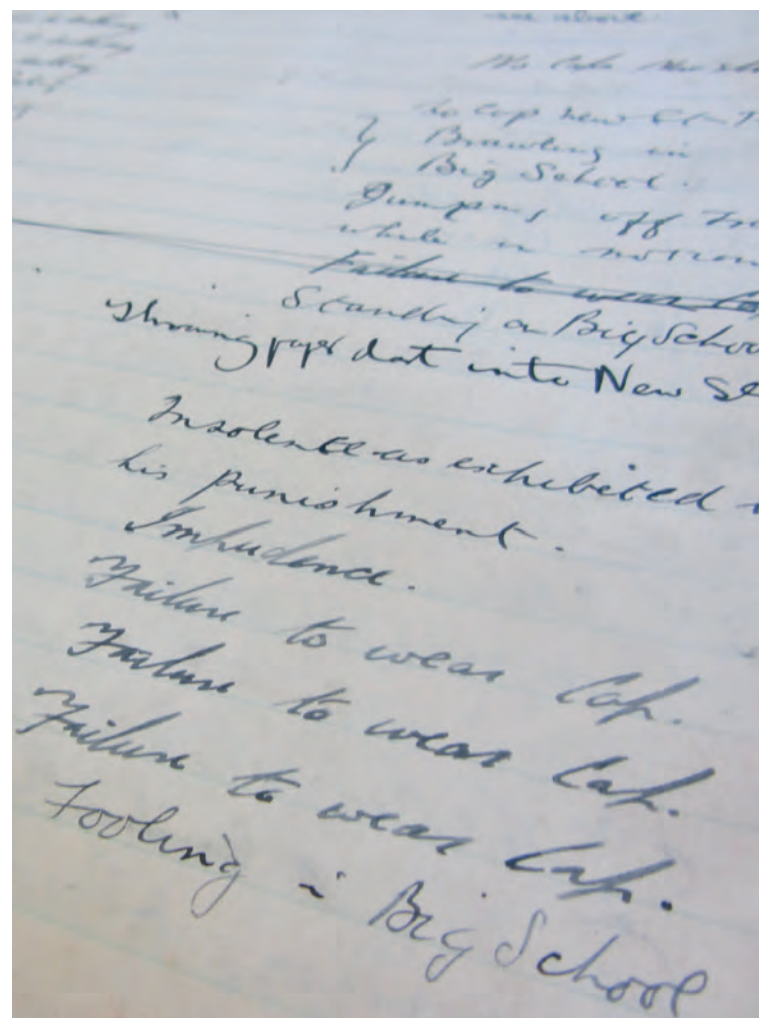 No Cap
no Cap New
Brawling in
Big School.
Jumping off
while in motion
Failure to wear
Standing on Big School
Throwing paper dart into New
Insolence as exhibited
his punishment.
Impudence.
Failure to wear Cap.
Failure to wear Cap.
Failure to wear Cap.
Fooling in Big School